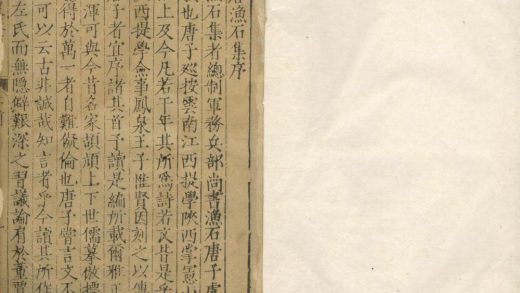 唐漁石集序
漁石集者總制軍務兵部尚書漁石唐子虞
也唐子巡按雲南江西提學陝西掌憲山
上及今凡若干年其所爲詩若文皆是乎
西提學僉事鳳泉王子惟賢因刻之以傳
子者宜序諸其首予讀是編所載爾雅
渾可與今昔名家頡頏上下世儒摹倣摽
得於萬一者自難儗倫也唐子嘗言文不
可以云古非誠哉知言者乎今讀其所作
左氏而無隱僻艱深之習議論有於董賈